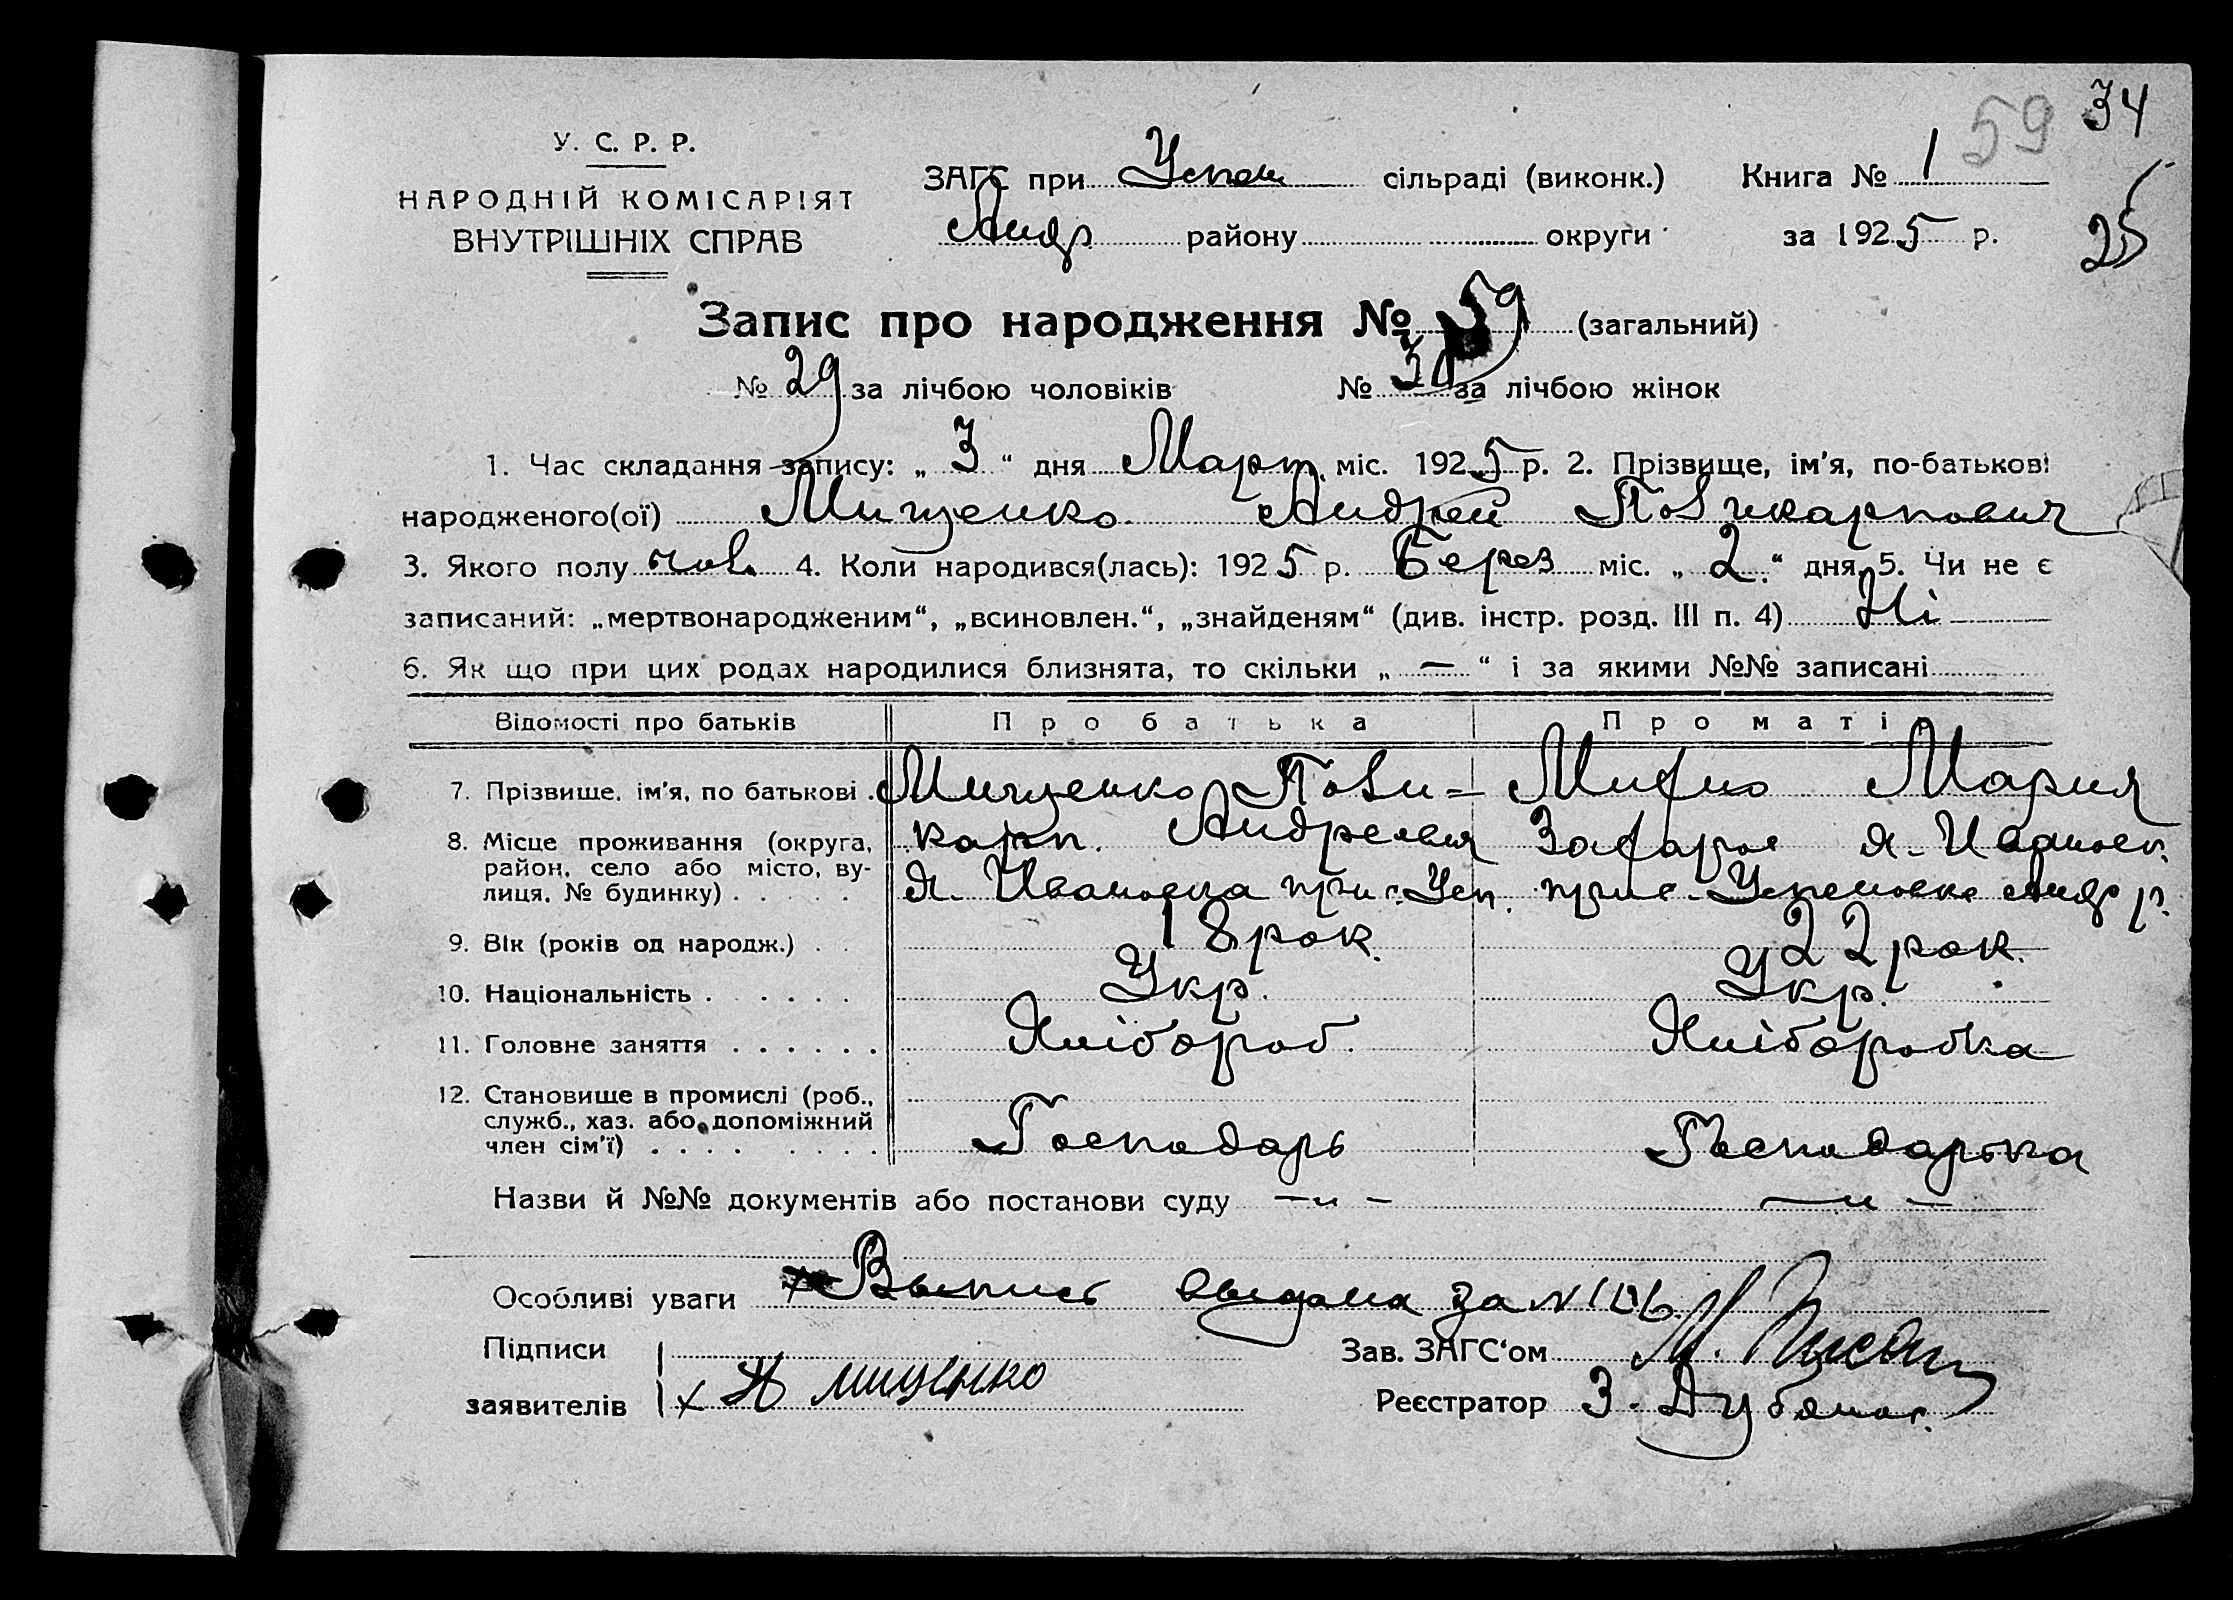 59 34
У. С. Р. Р.
НАРОДНІЙ КОМІСАРІЯТ
ВНУТРІШНІХ СПРАВ
ЗАГС при Успен сільраді (виконк.) Книга № 1
Андр району округи за 1925 р.
25
Запис про народження № 59 (загальний)
№ 29 за лічбою чоловіків № 30 за лічбою жінок
1. Час складання запису: „ 3 “ дня Март міс. 1925 р. 2. Прізвище, ім'я, по-батькові
народженого(ої) Мищенко Андрей
3. Якого полу чол. 4. Коли народився(лась): 1925 р. Берез міс. „ 2 “ дня 5. Чи не є
записаний: „мертвонародженим“, „всиновлен.“, „знайденям“ (див. інстр. розд. III п. 4) Ні
6. Як що при цих родах народилися близнята, то скільки „ — “ і за якими №№ записані
Відомості про батьків Про батька Про матір
7. Прізвище, ім'я, по батькові Мищенко Мария
8. Місце проживання (округа, район, село або місто, вулиця, № будинку) карп. Андреевич
д. Ивановка при с. Усп. д. Иванов. при с. Успеновке Андр р.
9. Вік (років од народж.) 18 рок. 22 рок.
10. Національність Укр. Укр.
11. Головне заняття Хлібороб. Хліборобка
12. Становище в промислі (роб., служб., хаз. або допоміжний член сім'ї) Господарь Господарька
Назви й №№ документів або постанови суду — „ — — „ —
Особливі уваги Выпись выдана за №
Підписи Зав. ЗАГС'ом
заявителів х мищенко Реєстратор З.